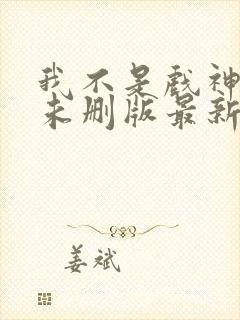 我不是戏神
未删版最新
姜斌